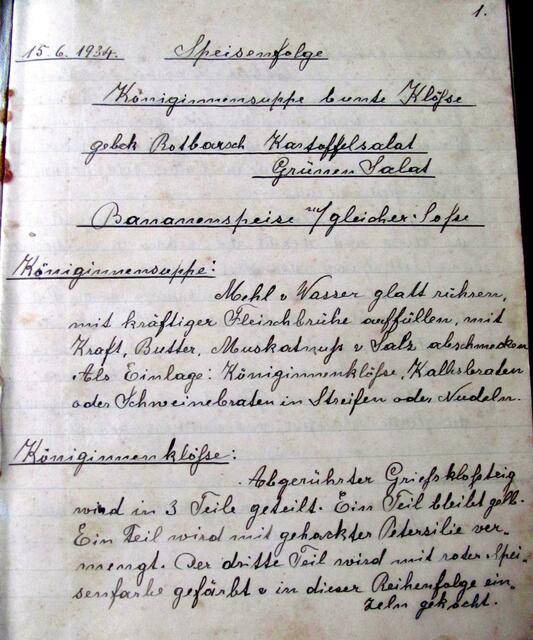 1.
15.6.1934. Speisenfolge
Königinnensuppe bunte Klöſse
gebck Rotbarsch Kartoffelsalat
Grünen Salat
Bananenspeise m/gleicher Soſse
Königinnensuppe:
Mehl v Wasser glatt rühren,
mit kräftiger Fleischbrühe auffüllen, mit
Kraft, Butter, Muskatnuſs v Salz abschmecken
Als Einlage: Königinnenklöſse, Kalbsbraten
oder Schweinebraten in Streifen oder Nudeln.
Königinnenklöſse:
Abgerührter Grieſskloſsteig
wird in 3 Teile geteilt. Ein Teil bleibt gelb.
Ein Teil wird mit gehackter Petersilie ver-
mengt. Der dritte Teil wird mit roter Spei-
senfarbe gefärbt v in dieser Reihenfolge ein-
zeln gekocht.